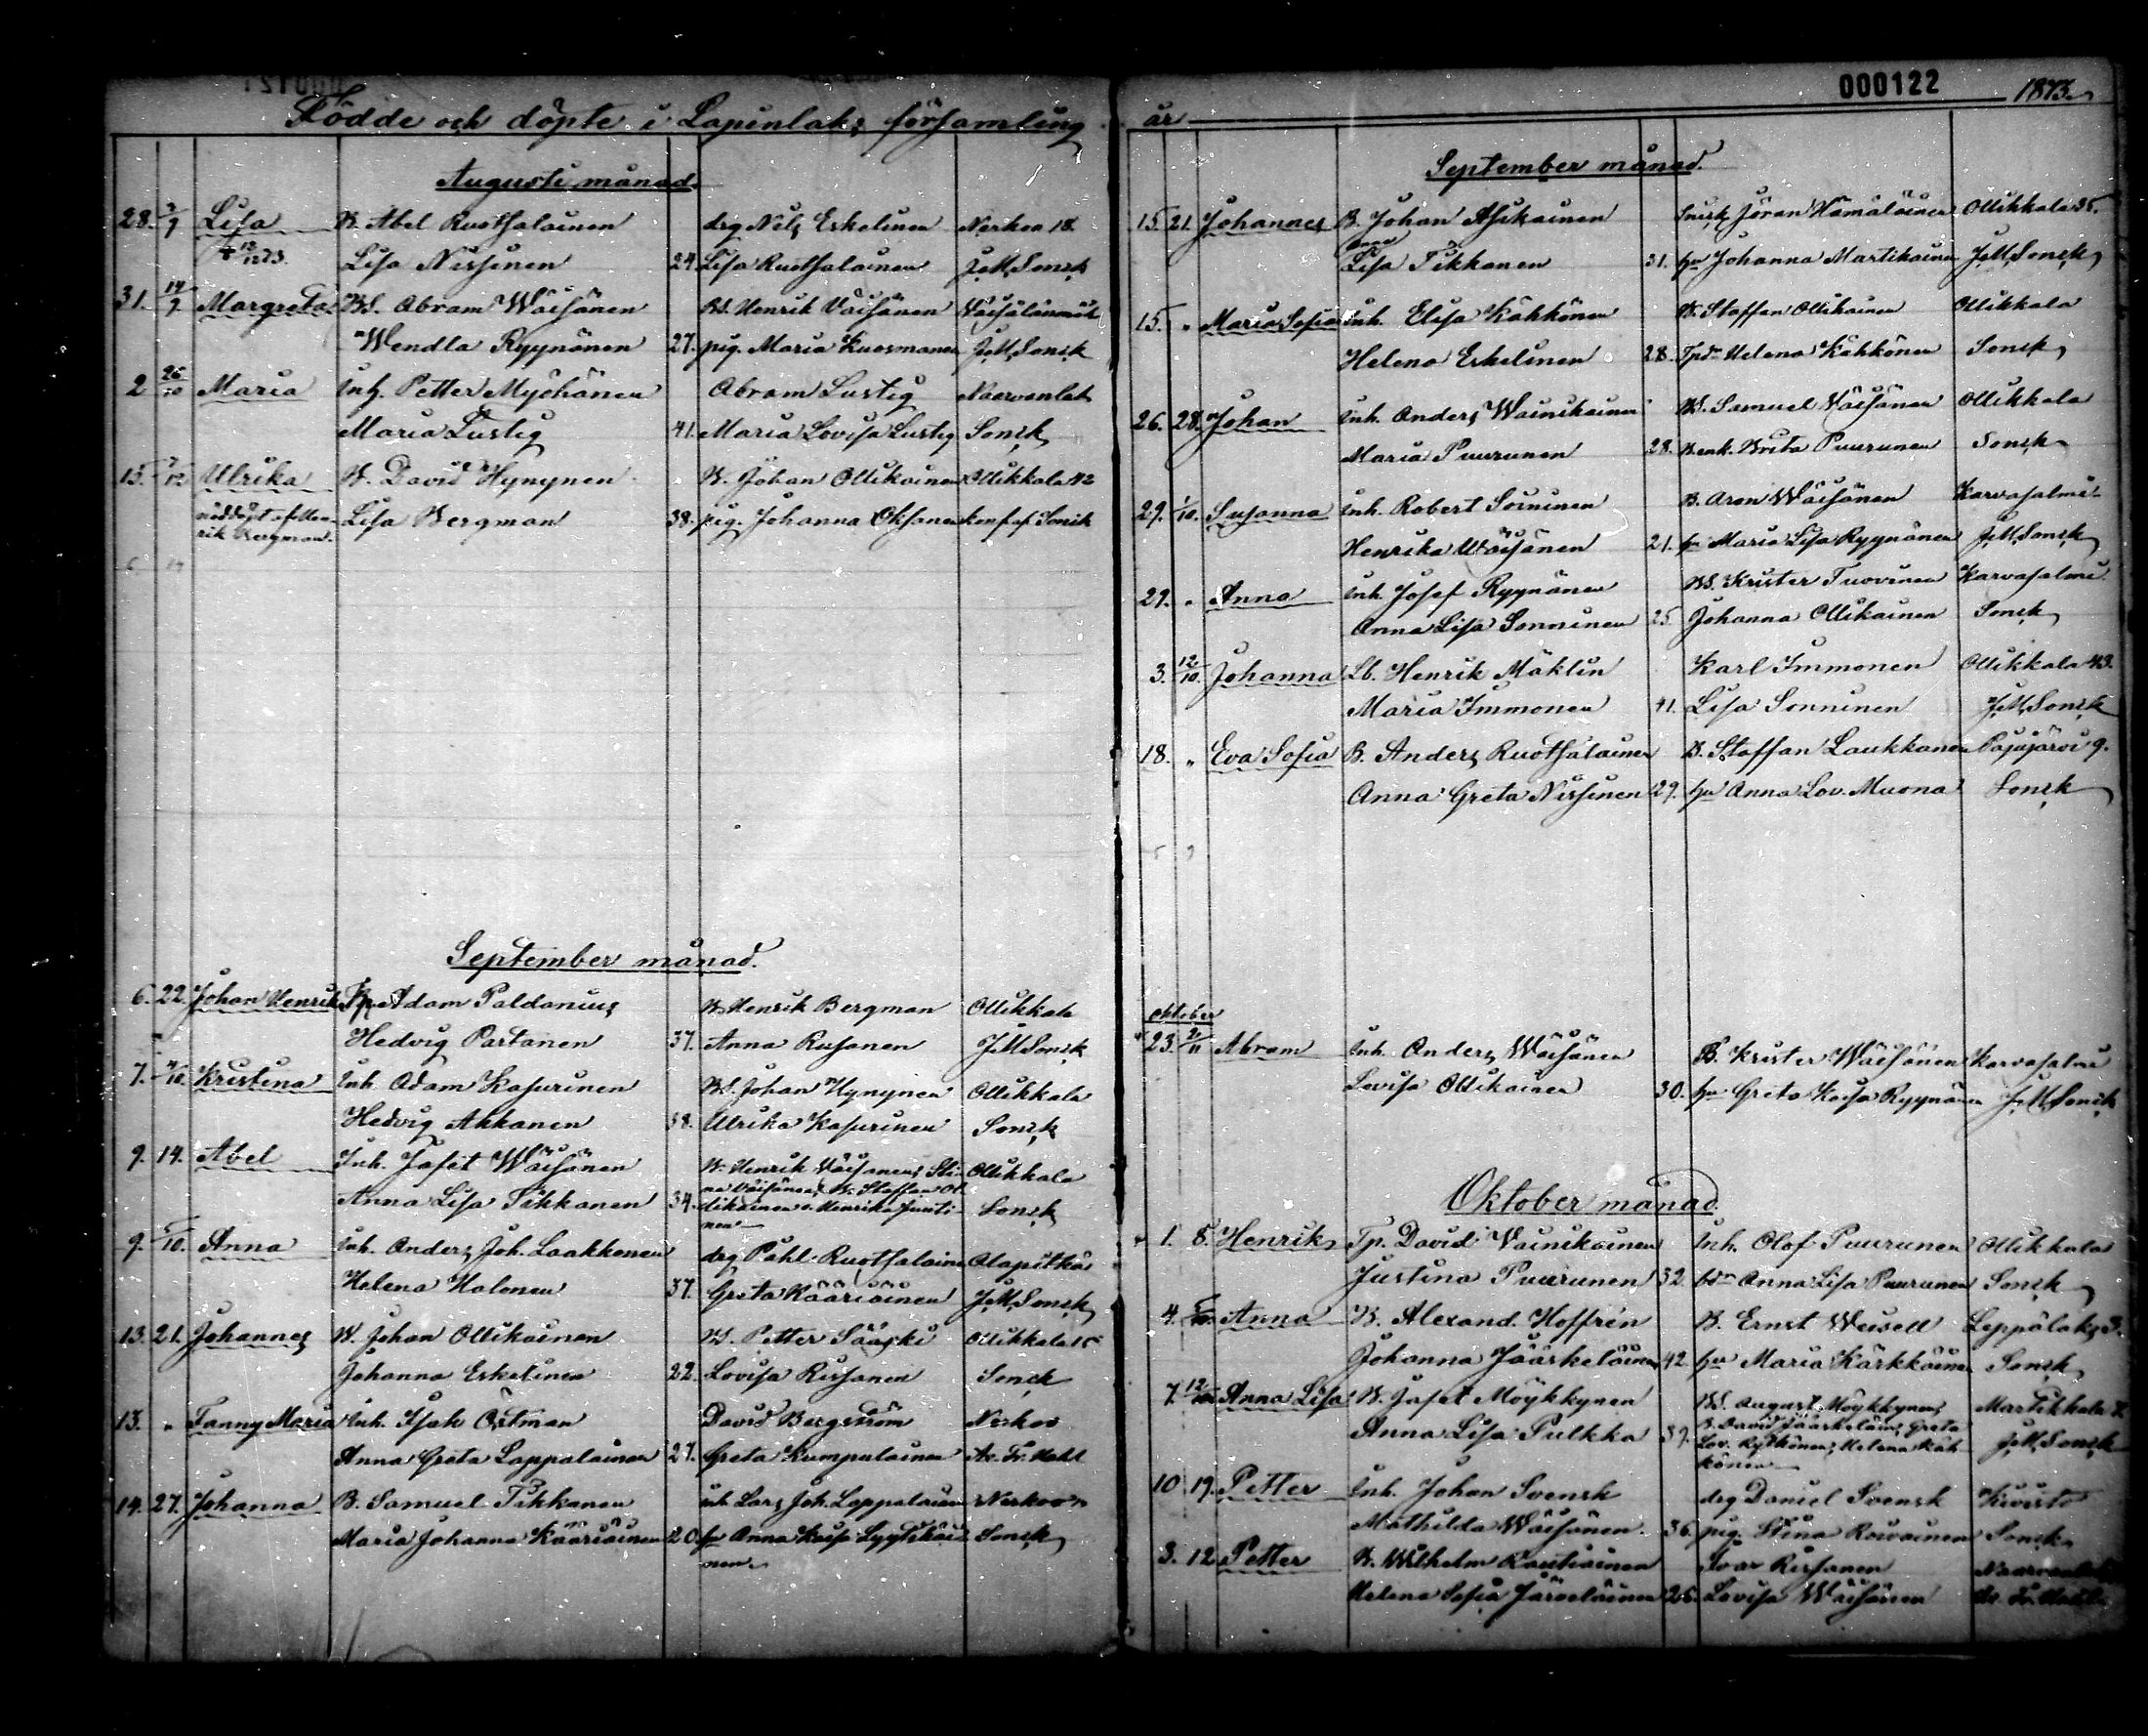 000122
Födde och döpte i Lapinlaks församling
år 1873.
Augusti månad.
28. 7/9 Lisa B. Abel Ruotsalainen drg Nils Eskelinen Nerkoo 18.
Lisa Nissinen 24. Lisa Ruotsalainen J.M. Sonck
31. 14/9 Margreta BS. Abram Wäisänen BS. Henrik Väisänen Väisälänmäk
Wendla Ryynänen 27. pig. Maria Kuosmanen J.M. Sonck
2 26/10 Maria Inh. Petter Myöhänen Abram Lustig Naarvanlak
Maria Lustig 41. Maria Lovisa Lustig Sonck
15. 7/12 Ulrika B. David Hynynen B. Johan Ollikainen Ollikkala 42
nöddöpt af Hen- Lisa Bergman 38. pig. Johanna Oksanen konf. af Sonck
rik Bergman.
September månad.
6. 22. Johan Henrik Tp. Adam Paldanius B. Henrik Bergman Ollikkala
Hedvig Partanen 37. Anna Rissanen J.M. Sonck
7. /10. Kristina Inh. Adam Kasurinen BS. Johan Hynynen Ollikkala
Hedvig Ahkanen 38. Ulrika Kasurinen Sonck
9. 14. Abel Inh. Jafet Wäisänen B. Henrik Väisänen, Sti- Ollikkala
na Väisänen, B. Staffan Ol-
Anna Lisa Tikkanen 34. likainen o. Henrika Juuti- Sonck
nen
9. 5/10. Anna Inh. Anders Joh. Laakkonen drg Påhl Ruotsalainen Alapitkä
Helena Halonen 37. Greta Kääriäinen J.M. Sonck
13. 21. Johannes B. Johan Ollikainen BS. Petter Sääski Ollikkala 15
Johanna Eskelinen 22. Lovisa Rissanen Sonck
13. " Fanny Maria Inh. Isak Östman David Bergström Nerkoo
Anna Greta Lappalainen 27. Greta Kumpulainen Av. Fr. Hahl
14. 27. Johanna B. Samuel Tikkanen inh. Lars Joh. Lappalainen Nerkoo
Maria Johanna Kääriäinen 20. hu Anna Kaisa Lyytikäi- Sonck
nen
September månad.
15. 21. Johannes B. Johan Asikainen Snick. Jöran Hämäläinen Ollikkala 35.
Anna
Lisa Tikkanen 31. hu Johanna Martikainen J.M. Sonck
15. " Maria Sofia Inh. Elisa Kähkönen B. Staffan Ollikainen Ollikkala
Helena Eskelinen 28. Tpdr Helena Kähkönen Sonck
26. 28. Johan Inh. Anders Wainikainen BS. Samuel Väisänen Ollikkala
Maria Puurunen 28. B.enk. Brita Puurunen Sonck
29. 1/10. Susanna Inh. Robert Sorninen B. Aron Wäisänen Karvasalmi
Henrika Wäisänen 21. hu Maria Lisa Ryynänen J.M. Sonck
29. " Anna Inh. Josef Ryynänen BS. Krister Tuovinen Karvasalmi
Anna Lisa Sonninen 25. Johanna Ollikainen Sonck
3. 12/10. Johanna Lb. Henrik Mäklin Karl Immonen Ollikkala 43.
Maria Immonen 41. Lisa Sonninen J.M. Sonck
18. " Eva Sofia B. Anders Ruotsalainen B. Staffan Laukkanen Pajujärvi 9.
Anna Greta Nissinen 29. hu Anna Lov. Muona Sonck
Oktober
23. 2/11 Abram Inh. Anders Wäisänen B. Krister Wäisänen Karvasalmi
Lovisa Ollikainen 30. hu Greta Kaisa Ryynänen J.M. Sonck
Oktober månad.
1. 8. Henrik Tp. David Wainikainen Inh. Olof Puurunen Ollikkala
Justina Puurunen 32. Anna Lisa Puurunen Sonck
4. Anna B. Alexand. Hoffrén B. Ernst Weisell Leppälaks 3.
Johanna Jääskeläinen 42. hu Maria Kärkkäinen Sonck
7. 12 Anna Lisa B. Jafet Möykkynen BS. August Möykkynen, Martikkala
B. David Jääskeläin., Greta
Anna Lisa Pulkka 39. Lov. Rytkönen, Helena Käh- J.M. Sonck
könen
10 19. Petter Inh. Johan Svensk drg Daniel Svensk Kivistö
Mathilda Wäisänen 36. pig. Stina Roivainen Sonck
3. 12 Petter B. Wilhelm Rautiainen Ivar Rissanen Naarvanlak
Helena Sofia Järveläinen 26. Lovisa Wäisänen Av. Fr. Hahl